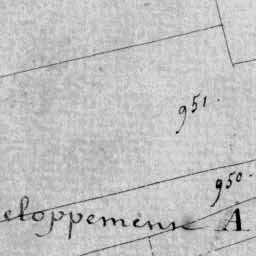 951.
950.
eloppement A